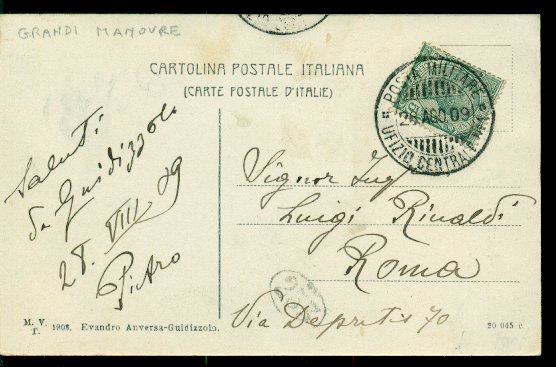 GRANDI MANOVRE
CARTOLINA POSTALE ITALIANA
(CARTE POSTALE D'ITALIE)
POSTA MILITARE
26 AGO. 09
UFIZIO CENTRALE
Saluti
da Guidizzolo
28. VIII 09
Pietro
Signor Ing
Luigi Rinaldi
Roma
Via Depretis 70
M. V.
T. 1908. Evandro Anversa-Guidizzolo.
20 045